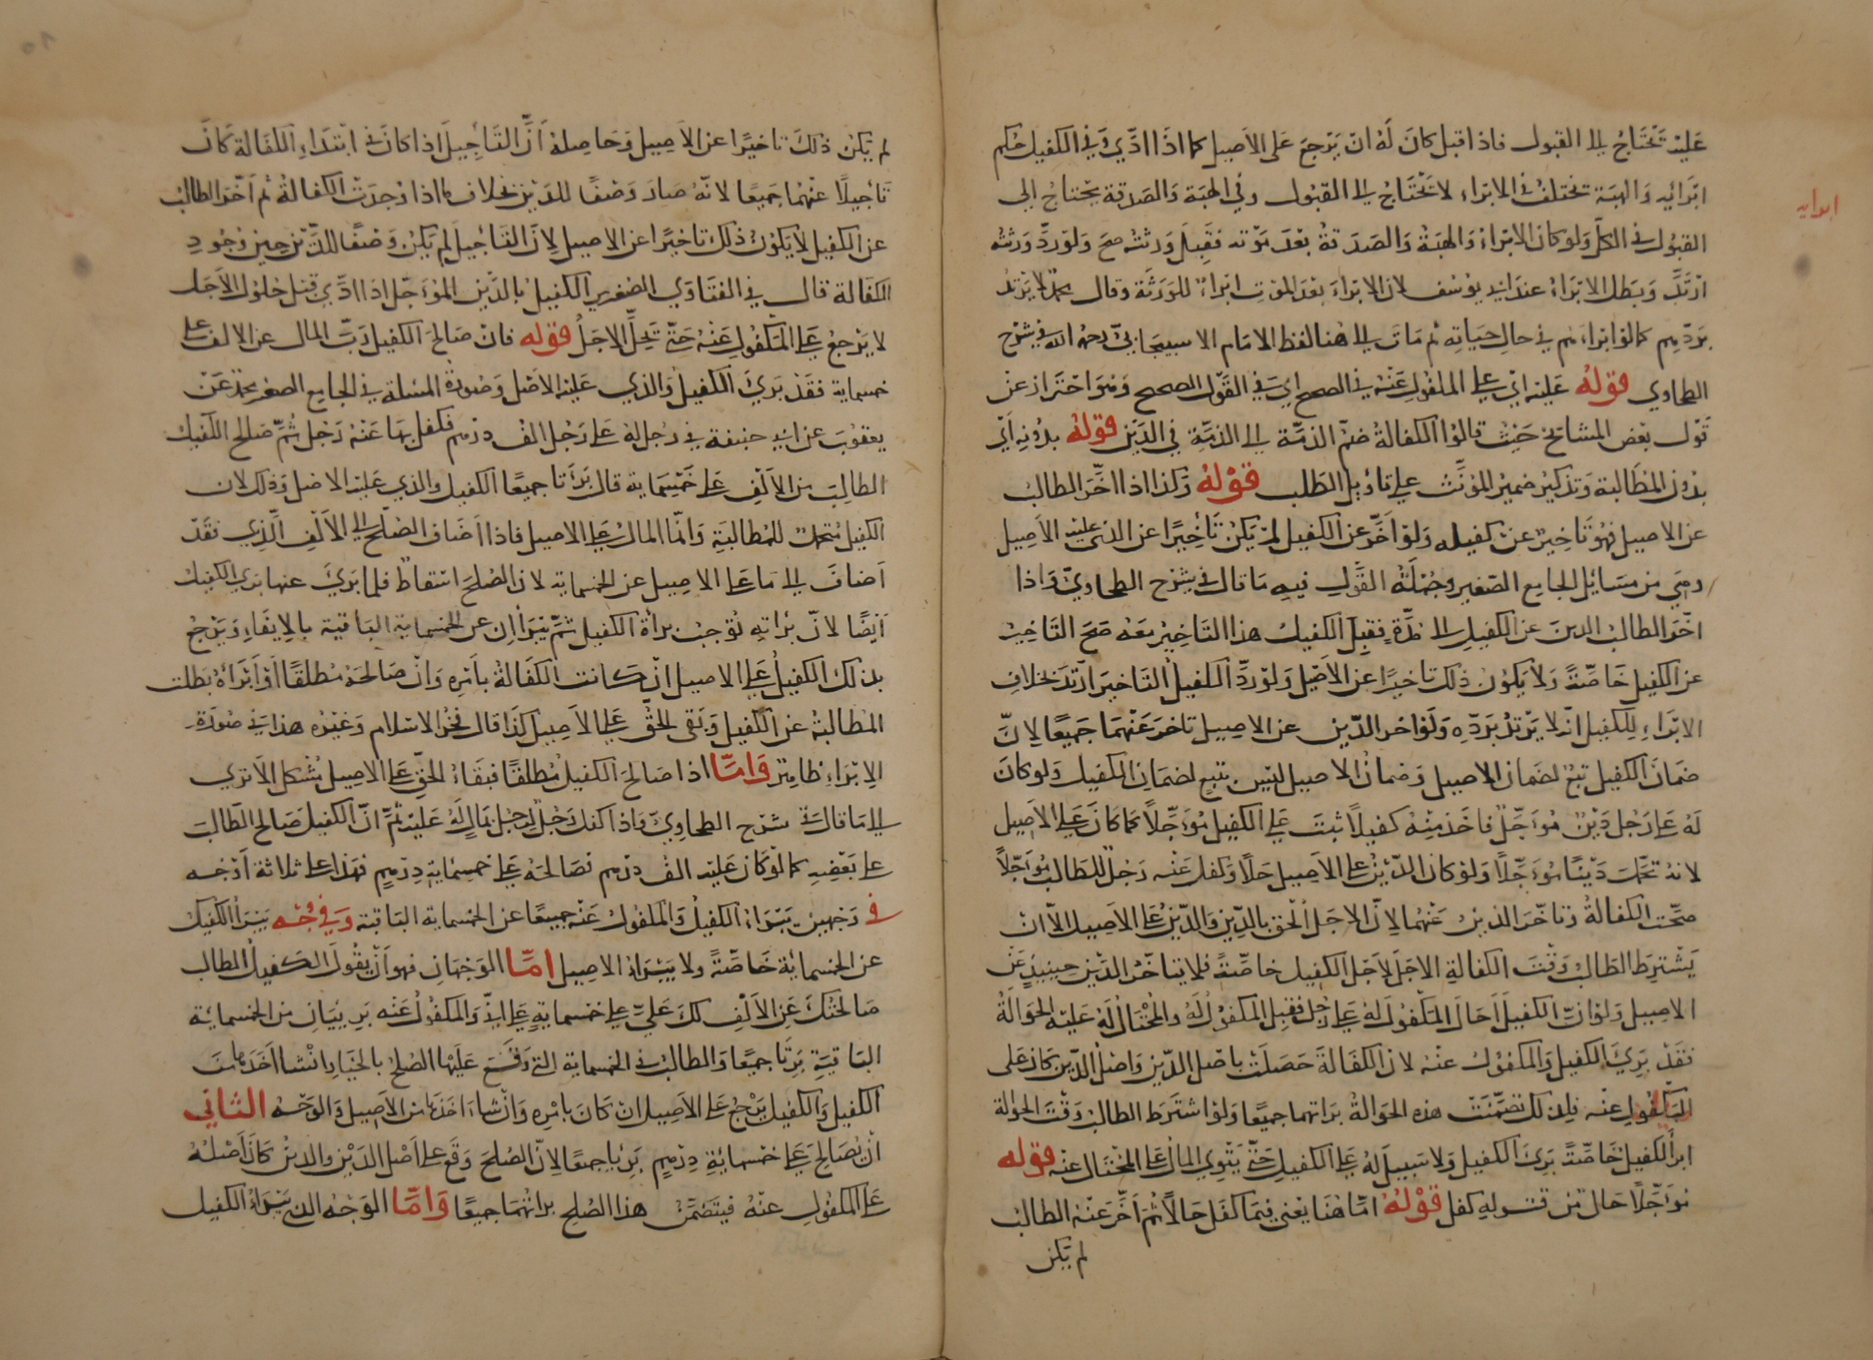 عليه تحتاج الى القبول فاذا قبل كان له ان يرجع على الاصيل كما اذا ادى في الكفيل حكم
ابرائه والهبة تختلف في الابراء لا تحتاج الى القبول وفي الهبة والصدقة يحتاج الى
ابرايه
القبول في الكل ولو كان الابراء والهبة والصدقة بعد موته فقبل ورثته صح ولو رد ورثته
ارتد وبطل الابراء عند ابي يوسف لان الابراء بعد الموت ابراء للورثة وقال محمد لا يرتد
بردهم كما لو ابراءهم في حال حياته ثم مات الى هنا لفظ الامام الاسبيجابي رحمه الله في شرح
الطحاوي قوله عليه اي على المكفول عنه في الصحيح اي في القول الصحيح وهو احتراز عن
قول بعض المشائخ حيث قالوا الكفالة ضم الذمة الى الذمة في الدين قوله بدونه اي
بدون المطالبة وتذكير ضمير المؤنث على تاويل الطلب قوله وكذا اذا اخر الطالب
عن الاصيل فهو تاخير عن كفيله ولو اخر عن الكفيل لم يكن تاخيرا عن الذي عليه الاصيل
وهي من مسائل الجامع الصغير وجملة القول فيه ما قال في شرح الطحاوي واذا
اخر الطالب الدين عن الكفيل الى مدة فقبل الكفيل هذا التاخير معه صح التاخير
عن الكفيل خاصة ولا يكون ذلك تاخيرا عن الاصيل ولو رد الكفيل التاخير ارتد بخلاف
الابراء للكفيل انه لا يرتد برده ولو اخر الدين عن الاصيل تاخر عنهما جميعا لان
ضمان الكفيل تبع لضمان الاصيل وضمان الاصيل ليس بتبع لضمان الكفيل ولو كان
له على رجل دين مؤجل فاخذ منه كفيلا ثبت على الكفيل مؤجلا كما كان على الاصيل
لانه تحمل دينا مؤجلا ولو كان الدين على الاصيل حالا وكفل عنه رجل للطالب مؤجلا
صحت الكفالة وتاخر الدين عنهما لان الاجل الحق بالدين والدين على الاصيل الا ان
يشترط الطالب وقت الكفالة الاجل لاجل الكفيل خاصة فلا يتاخر الدين حينئذ عن
الاصيل ولو ان الكفيل احال المكفول له على رجل فقبل المكفول له والمحتال له عليه الحوالة
فقد برئ الكفيل والمكفول عنه لان الكفالة حصلت باصل الدين واصل الدين كان على
المكفول عنه فلذلك تضمنت هذه الحوالة براتهما جميعا ولو اشترط الطالب وقت الحوالة
ابرأ الكفيل خاصة برئ الكفيل ولا سبيل له على الكفيل حتى يتوي المال على المحتال عنه قوله
مؤجلا حال من قوله كفل قوله اما هنا يعني فيما كفل حالا ثم اخر عنه الطالب
لم يكن
لم يكن ذلك تاخيرا عن الاصيل وحاصله ان التاجيل اذا كان في ابتداء الكفالة كان
تاجيلا عنهما جميعا لانه صار وصفا للدين بخلاف ما اذا وجدت الكفالة ثم اخر الطالب
عن الكفيل لا يكون ذلك تاخيرا عن الاصيل لان التاجيل لم يكن وصفا للدين حين وجود
الكفالة قال في الفتاوي الصغري الكفيل بالدين المؤجل اذا ادى قبل حلول الاجل
لا يرجع على المكفول عنه حتى يحل الاجل قوله فان صالح الكفيل رب المال عن الالف على
خمسماية فقد برئ الكفيل والذي عليه الاصل وصورة المسلة في الجامع الصغير محمد عن
يعقوب عن ابي حنيفة في رجل له على رجل الف درهم فكفل بها عنه رجل ثم صالح الكفيل
الطالب من الالف على خمسماية قال برئا جميعا الكفيل والذي عليه الاصل وذلك لان
الكفيل متحمل للمطالبة وانما المال على الاصيل فاذا اضاف الصلح الى الالف الذي فقد
اضاف الى ما على الاصيل عن الخمسماية لان الصلح اسقاط فلما برئ عنها برئ الكفيل
ايضا لان براته توجب براة الكفيل ثم يبرأان عن الخمسماية الباقية بالايفاء ويرجع
بذلك الكفيل على الاصيل ان كانت الكفالة بامره وان صالحه مطلقا او ابرأه بطلت
المطالبة عن الكفيل وبقى الحق على الاصيل كذا قال فخر الاسلام وغيره هذا في صورة
الابراء ظاهر واما اذا صالح الكفيل مطلقا فبقاء الحق على الاصيل مشكل الا ترى
الى ما قال في شرح الطحاوي واذا كفل رجل لرجل بمال له عليه ثم ان الكفيل صالح الطالب
على بعضه كما لو كان عليه الف درهم فصالحه على خمسماية درهم فهذا على ثلاثة اوجه
في وجهين يبرأ الكفيل والمكفول عنه جميعا عن الخمسماية الباقية وفي وجه يبرأ الكفيل
عن الخمسماية خاصة ولا يبرأ الاصيل اما الوجهان فهو ان يقول الكفيل للطالب
صالحتك عن الالف لك علي على خمسماية على اني والمكفول عنه بريئان من الخمسماية
الباقية برئا جميعا والطالب في الخمسماية التي وقع عليها الصلح بالخيار ان شا اخذها من
الكفيل والكفيل يرجع على الاصيل ان كان بامره وان شاء اخذها من الاصيل والوجه الثاني
ان يصالح على خمسماية درهم برئا جميعا لان الصلح وقع على اصل الدين والدين كان اصله
على المكفول عنه فيتضمن هذا الصلح براتهما جميعا واما الوجه الذي يبرأ الكفيل